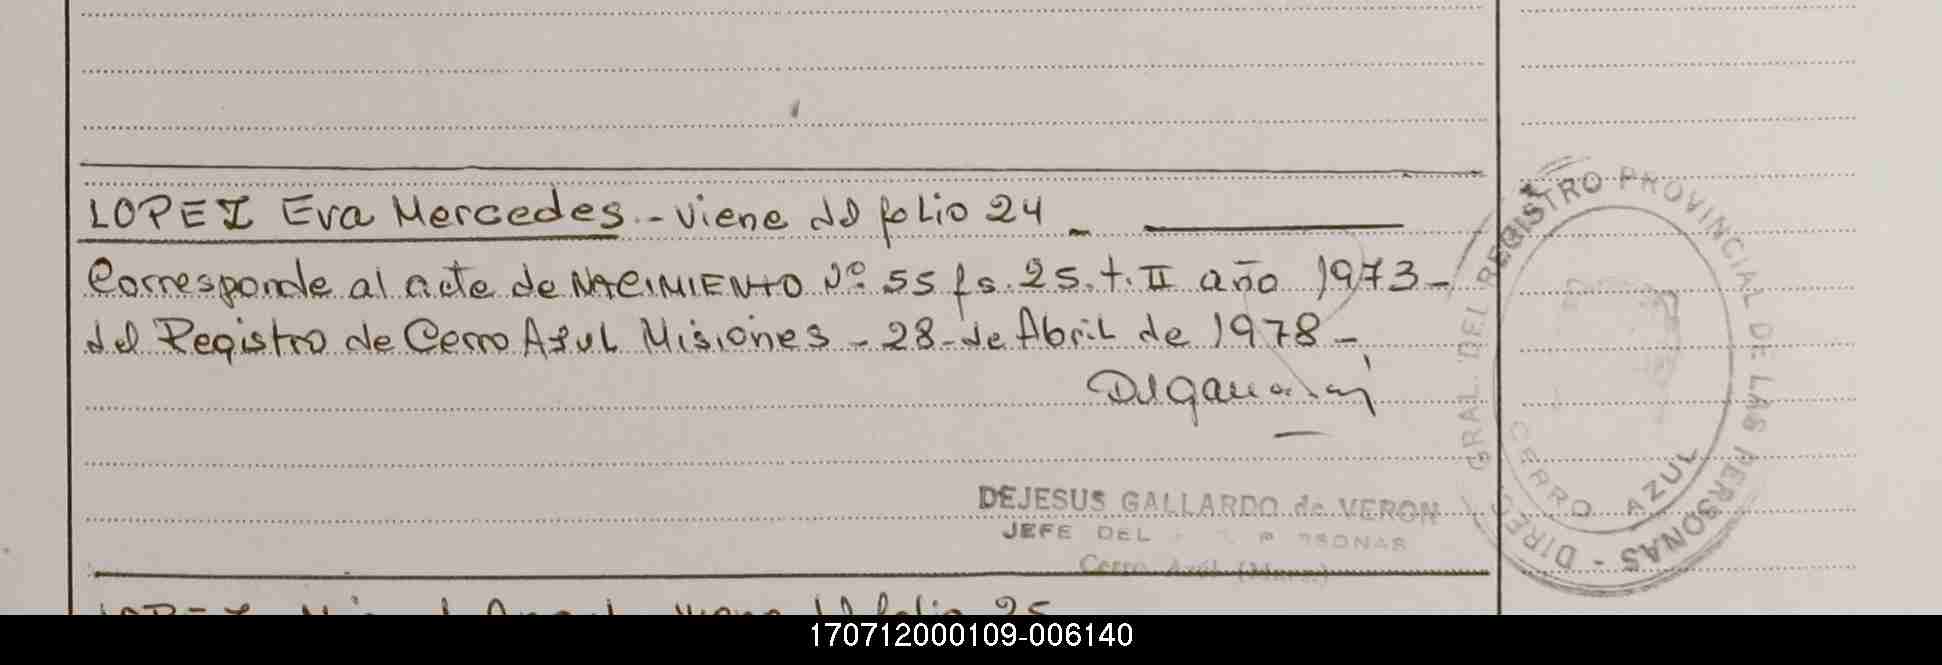 LOPEZ Eva Mercedes - viene del folio 24 -
Corresponde al acta de NACIMIENTO Nº 55 fs. 25. t. II año 1973 -
del Registro de Cerro Azul Misiones - 28 - de Abril de 1978 -
DEJESUS GALLARDO de VERON
JEFE DEL
Cerro Azul (Mnes.)
DIREC GRAL. DEL REGISTRO PROVINCIAL DE LAS PERSONAS -
CERRO AZUL
LOPEZ viene del folio 25
170712000109-006140